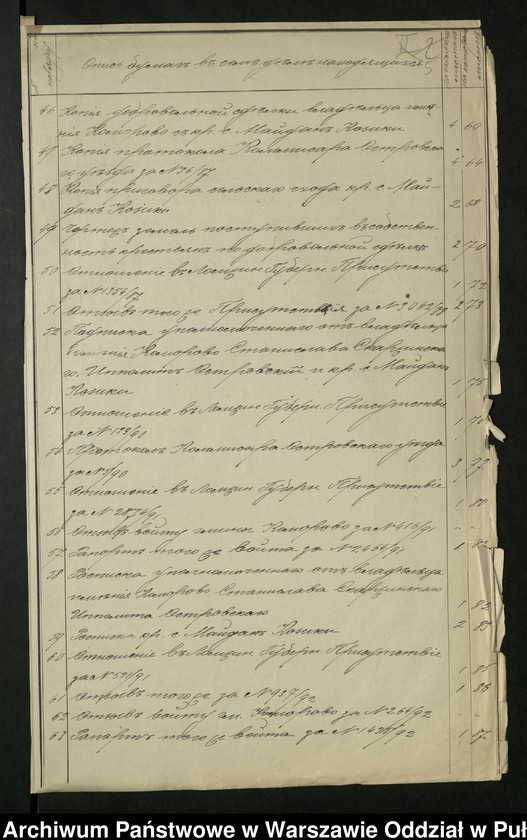 Опись бумагъ въ семъ дѣлѣ находящихся
46 Копія добровольной сдѣлки владѣльца имѣ-
нія Коморово съ кр. с. Майданъ Козики 4 60
47 Копія протокола Коммисара Островска-
го уѣзда за № 36/77 4 64
48 Копія приговора сельскаго схода кр. с. Май-
данъ Козики 2 68
49 Чертежъ земель поступившихъ въ собствен-
ность крестьянъ по добровольной сдѣлкѣ 2 70
50 Отношеніе въ Ломжин. Губерн. Присутствіе
за № 1354/ 1 72
51 Отзывъ того же Присутствія за № 3042/ 2 73
52 Подписка уполномоченнаго отъ владѣльца
имѣнія Коморово Станислава Скаржинска
го, Ипполитъ Островскій и кр. с. Майданъ
Козики 1 75
53 Отношеніе въ Ломжин. Губерн. Присутствіе
за № 193/90 1
54 Протоколъ Коммисара Островскаго уѣзда
за № /90 3 77
55 Отношеніе въ Ломжин. Губерн. Присутствіе
за № 2874/91 1 80
56 Отзывъ войту гмины Коморово за № 416/91 " "
57 Рапортъ того же войта за № 2464/91 1
58 Росписка уполномоченнаго отъ владѣльца
имѣнія Коморово Станислава Скаржинскаго
Ипполита Островскаго 1 82
59 Росписка кр. с. Майданъ Козики 2 83
60 Отношеніе въ Ломжин. Губерн. Присутствіе
за № 531/91 1 85
61 Отзывъ того же за № 937/92 1 86
62 Отзывъ войту гм. Коморово за № 266/92 " "
63 Рапортъ того же войта за № 1428/92 1 87
Archiwum Państwowe w Warszawie Oddział w Puł